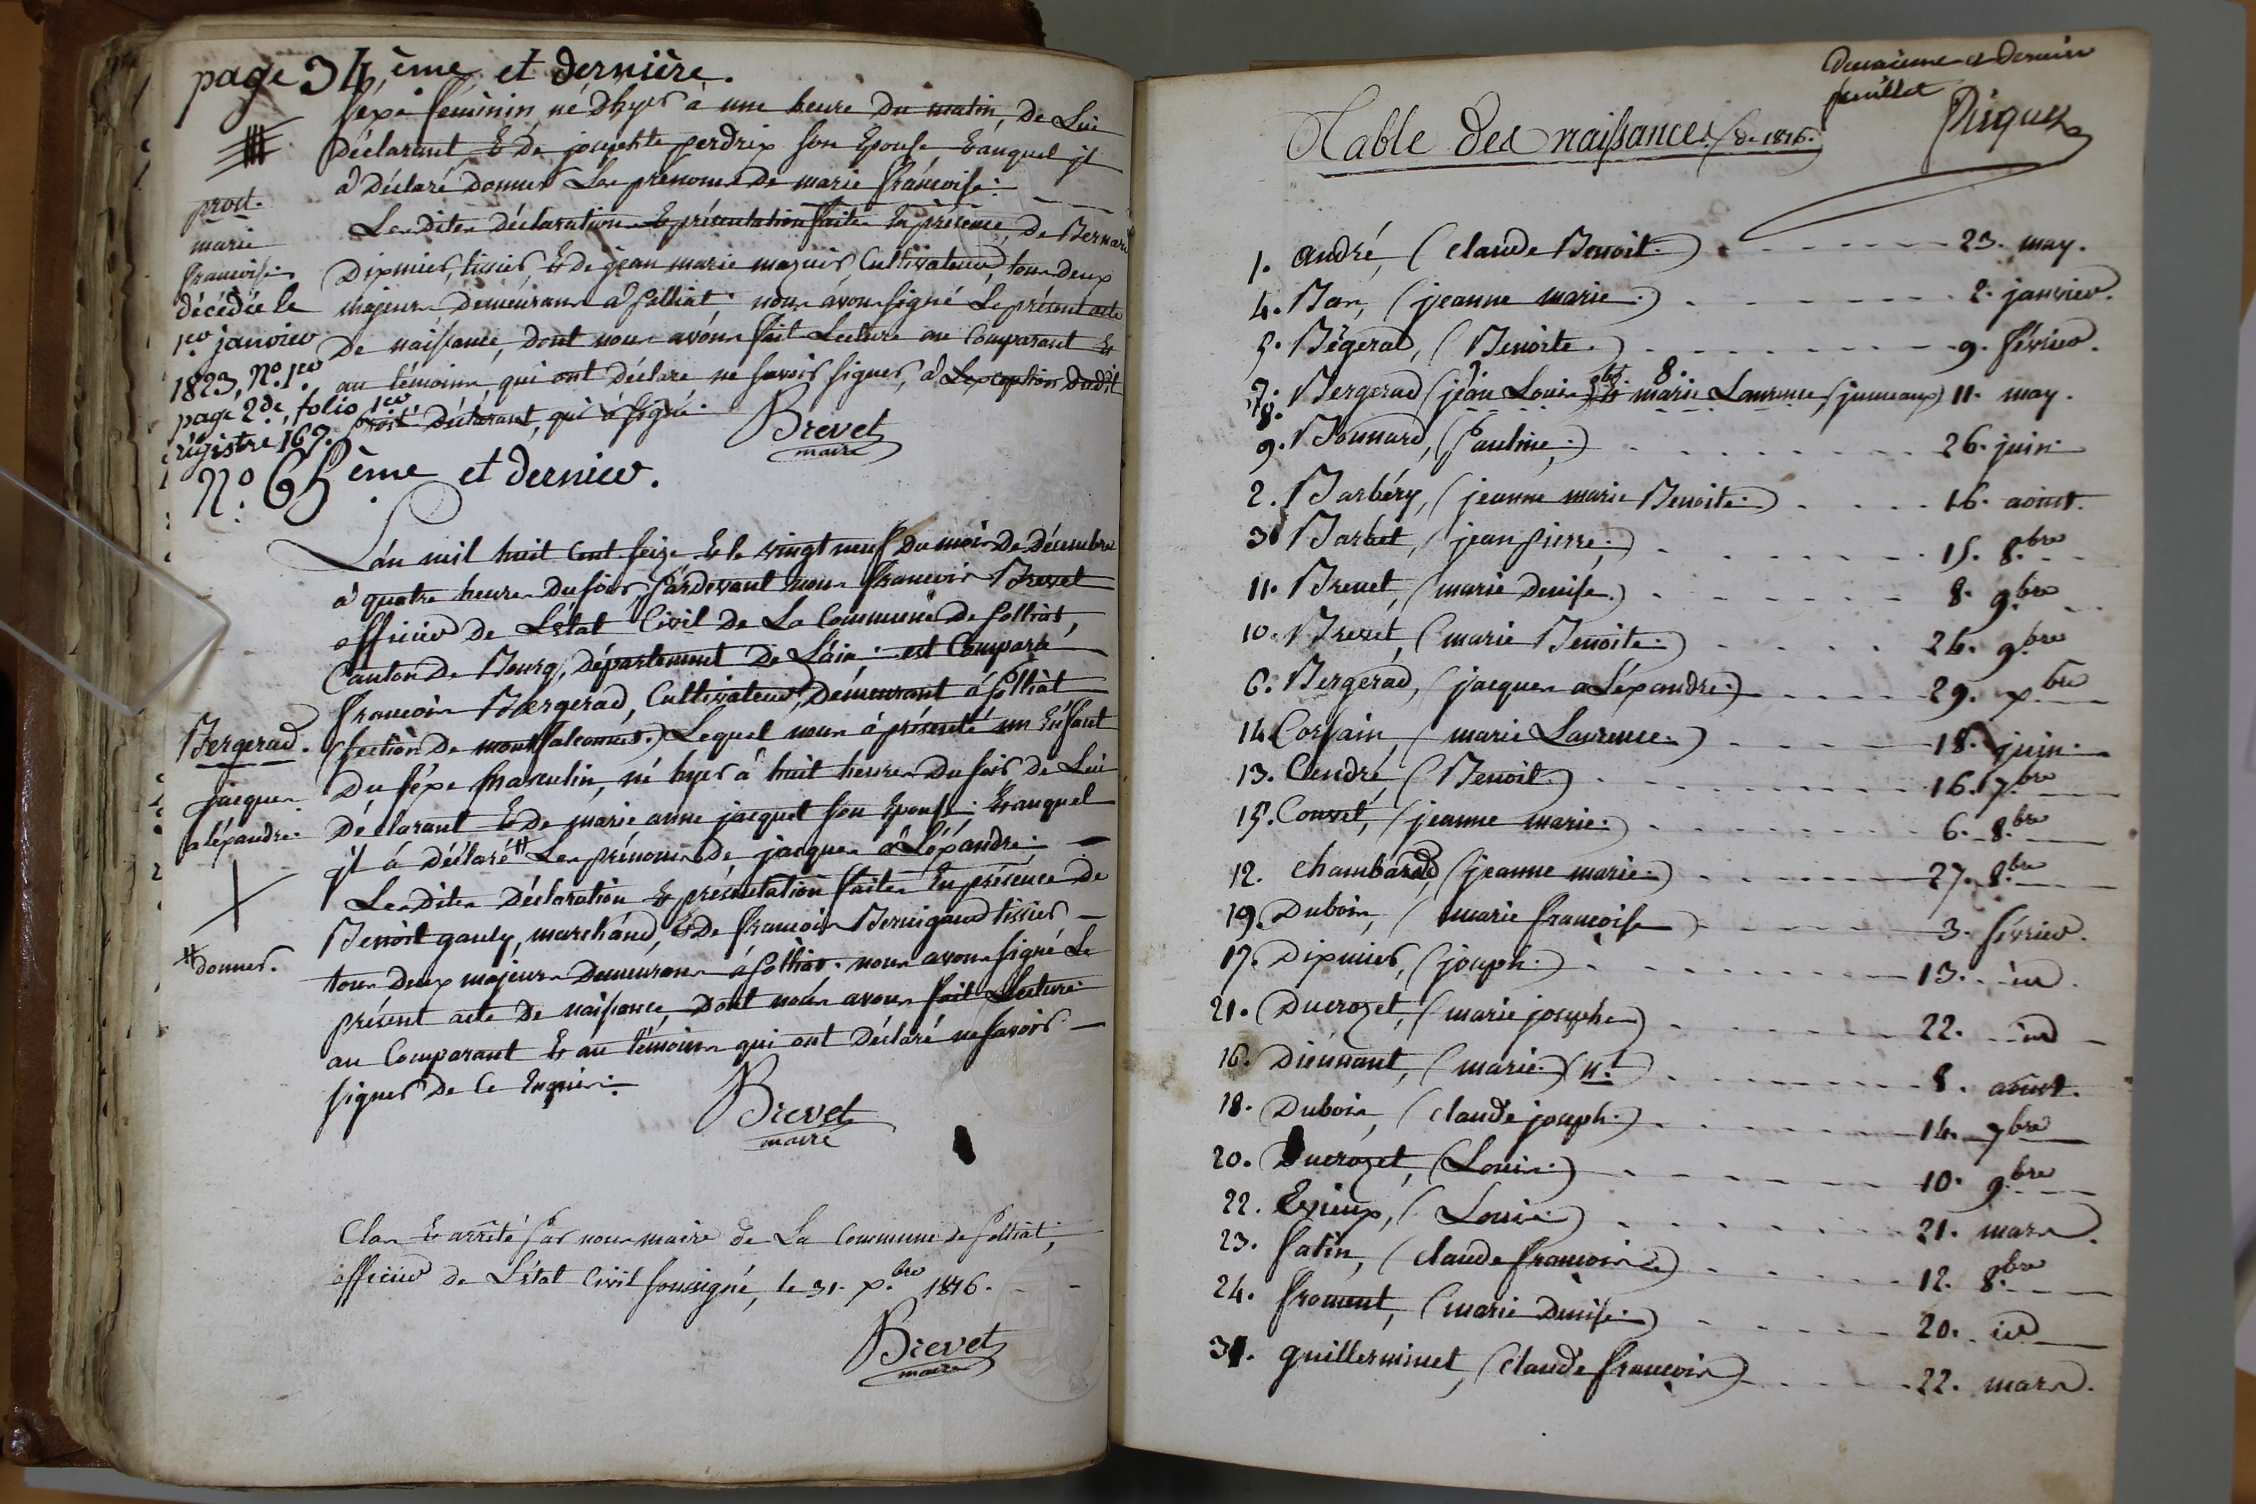 page 34 ème et dernière.
séxe féminin, né d'hyer à une heure du matin, de Lui
déclarant & de josephte perdrix son Epouse, & auquel jl
à déclaré donner Les prénoms de marie françoise.
prost.
marie
françoise.
décédée le
1er janvier
1823, No. 1er
page 2de, folio 1er
régistre 167.
Les dites déclaration & présentation faites En présence, de Bernard
Dixmier, tissier, & de jean marie mazuir, Cultivateur, tous deux
majeurs demeurans à Polliat; nous avons signé Le présent acte
de naissance, dont nous avons fait Lecture au Comparant &
au témoins, qui ont déclaré ne savoir signer, à L'exception dudit
Prost déclarant, qui à signé.
Brevet
maire
No. 65 ème et dernier.
L'an mil huit Cent seize & le vingt neuf du mois de Décembre
à quatre heures du soir, Pardevant nous françois Brevet
officier de L'état Civil de La Commune de Polliat,
Canton de Bourg, département de L'ain; est Comparu
françois Bergerad, Cultivateur, demeurant à Polliat
(section de montfalconnet.) Lequel nous à présenté un Enfant
du séxe masculin, né hyer à huit heures du soir, de Lui
déclarant & de marie anne jacquet son Epouse; & auquel
q'il à déclaré # Les prénoms de jacques aléxandre.
Bergerad.
jacques
aléxandre.
# donner.
Les dites déclaration & présentation faites En présence de
Benoit gauly, marchand, & de françois Bernigaud tissier
tous deux majeurs demeurans à Polliat. nous avons signé Le
présent acte de naissance, dont nous avons fait Lecture
au Comparant & au témoins qui ont déclaré ne savoir
signer de Ce Enquis.
Brevet
maire
Clos & arrêté Par nous maire de La Commune de Polliat,
officier de L'état Civil soussigné, le 31. Xbre 1816.
Brevet
maire
Deuxième et dernier
feuillet
Table des naissances, de 1816.
1. andré, (claude Benoit.) 23. may.
4. Bas, (jeanne marie.) 2. janvier.
5. Bégerad, (Benoite.) 9. février.
7. & 8. Bergerad (jean Louis & marie Laurence, jumeaux) 11. may.
9. Bonnard, (Pauline.) 26. juin
2. Barbéry, (jeanne marie Benoite.) 16. aoüst.
3. Barbet, (jean Pierre.) 15. 8bre
11. Brevet, (marie Denise.) 8. 9bre
10. Brevet, (marie Benoite.) 26. 9bre
6. Bergerad, (jacques aléxandre.) 29. Xbre
14. Corsain, (marie Laurence.) 18. juin.
13. Cendré, (Benoit.) 16. 7bre
15. Convet, (jeanne marie.) 6. 8bre
12. Chambard, (jeanne marie.) 27. 8bre
19. Dubois, (marie françoise) 3. février.
17. Dixmier, (joseph.) 13. id.
21. Ducrozet, (marie josephe) 22. id
16. Diennant, (marie.) 8. aoüst.
18. Dubois, (claude joseph.) 14. 7bre
20. Ducrozet, (Louis.) 10. 9bre
22. Evieux, (Louis.) 21. mars.
23. fatin, (claude françois) 12. 8bre
24. froment, (marie Denise.) 20. id
31. guillerminet, (claude françois) 22. mars.